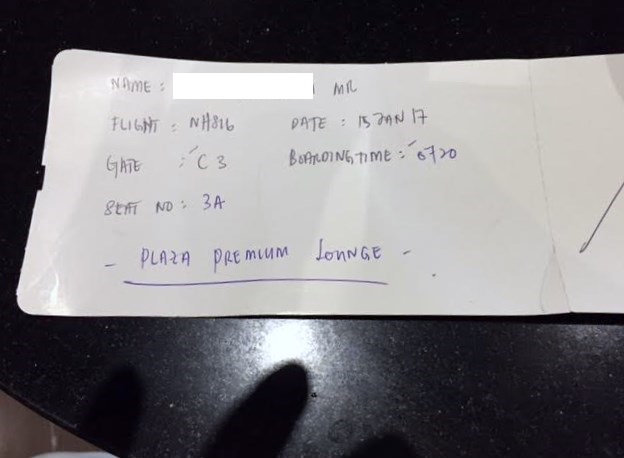 NAME : MR
FLIGHT : NH816 DATE : 15 JAN 17
GATE : C3 BOARDING TIME : 0720
SEAT NO : 3A
- PLAZA PREMIUM LOUNGE -